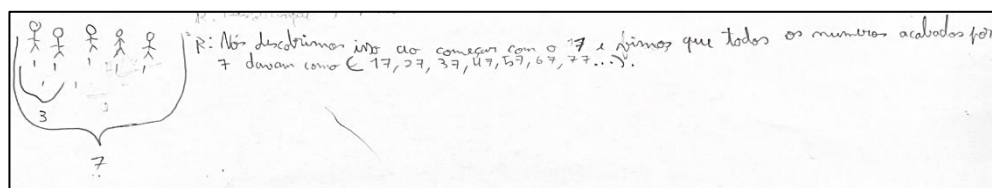 R: Nós descobrimos isso ao começar com o 7 e vimos que todos os numeros acabados por
7 davam como (17, 27, 37, 47, 57, 67, 77...).
3
7